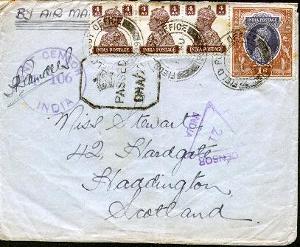 BY AIR MA
INDIA POSTAGE
INDIA POSTAGE
INDIA POSTAGE
INDIA POSTAGE
FIELD POST OFFICE
CENSOR
106
INDIA
PASSED
DHA
CENSOR
21
INDIA
Miss Stewart,
42, Hardgate,
Haddington,
Scotland